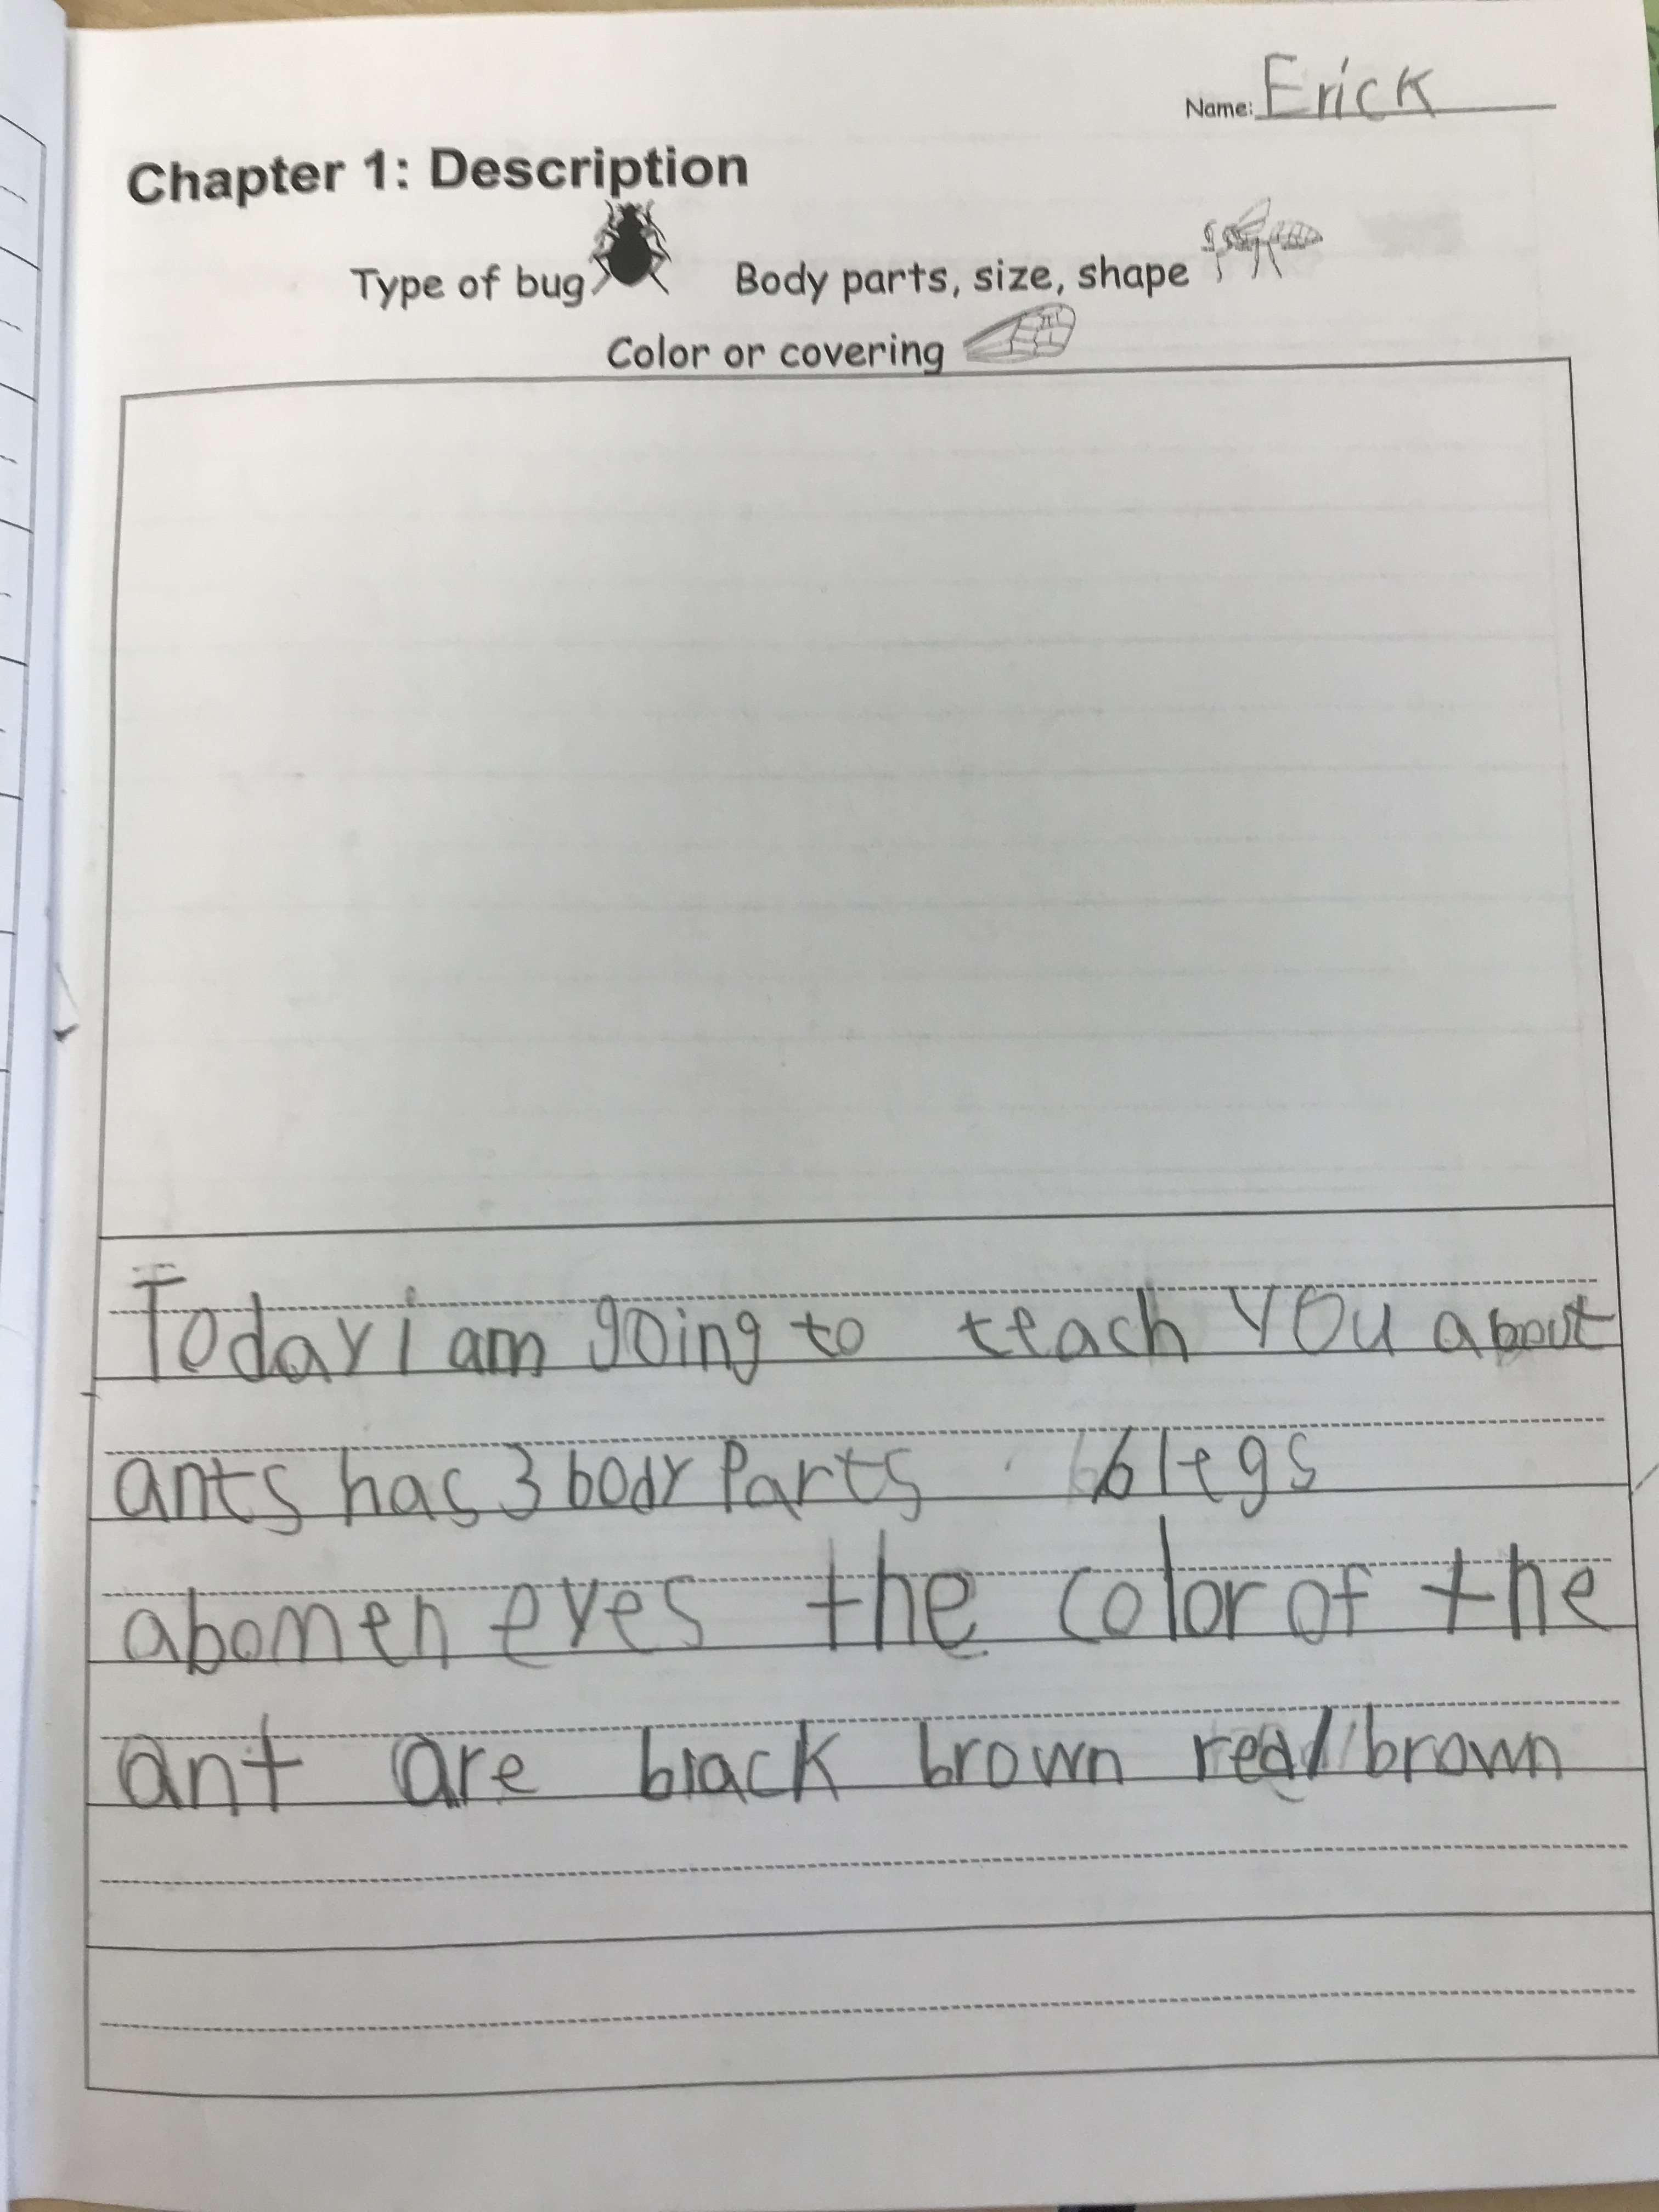 Name: Erick
Chapter 1: Description
Type of bug Body parts, size, shape
Color or covering
Today i am going to teach you about
ants has 3 body Parts 6 legs
abomen eyes the color of the
ant are black brown red/brown